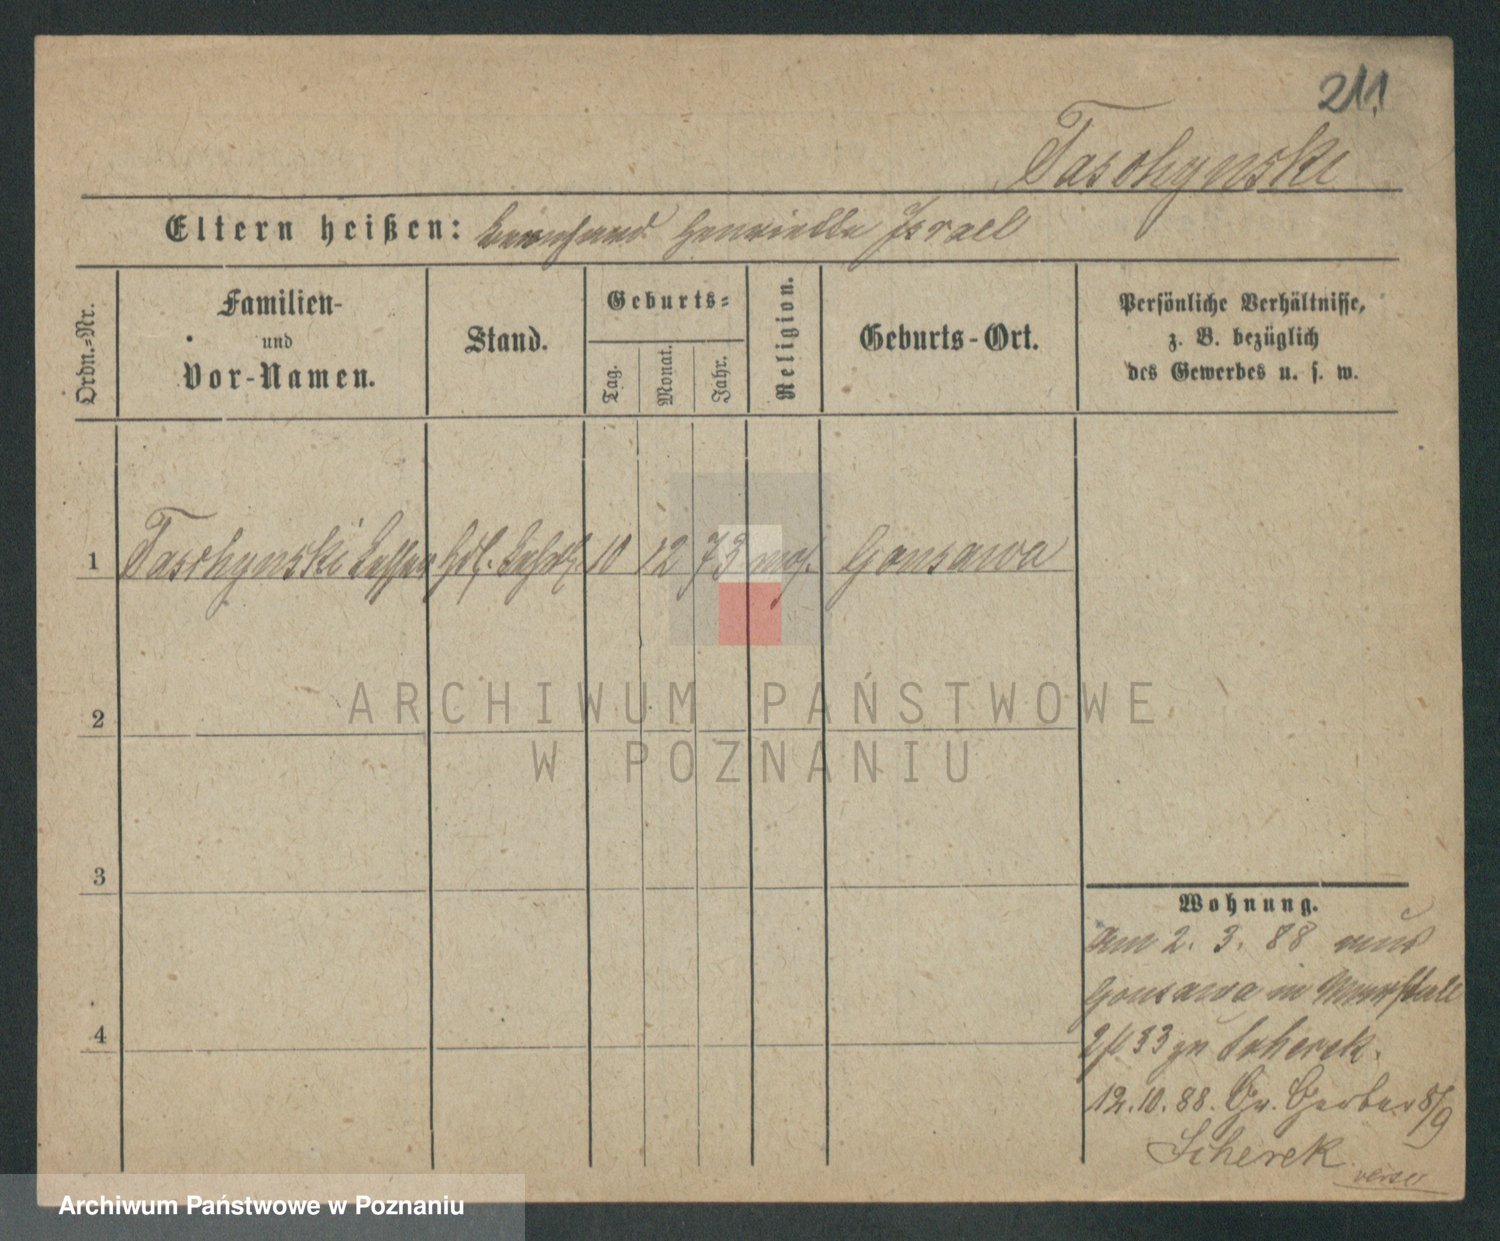 211
Taschynski
Eltern heißen: Bernhard Henriette Israel
Ordn.-Nr.
Familien-
und
Vor-Namen.
Stand.
Geburts-
Tag.
Monat.
Jahr.
Religion.
Geburts-Ort.
Persönliche Verhältnisse,
z. B. bezüglich
des Gewerbes u. s. w.
1 Taschynski 10 12 73 mos. Gonsawa
2
3
4
Wohnung.
am 2. 3. 88 aus
Gonsawa in
33 zu Scherek.
12.10.88. Gr. Gerber 8/9
Scherek
verso
ARCHIWUM PAŃSTWOWE
W POZNANIU
Archiwum Państwowe w Poznaniu